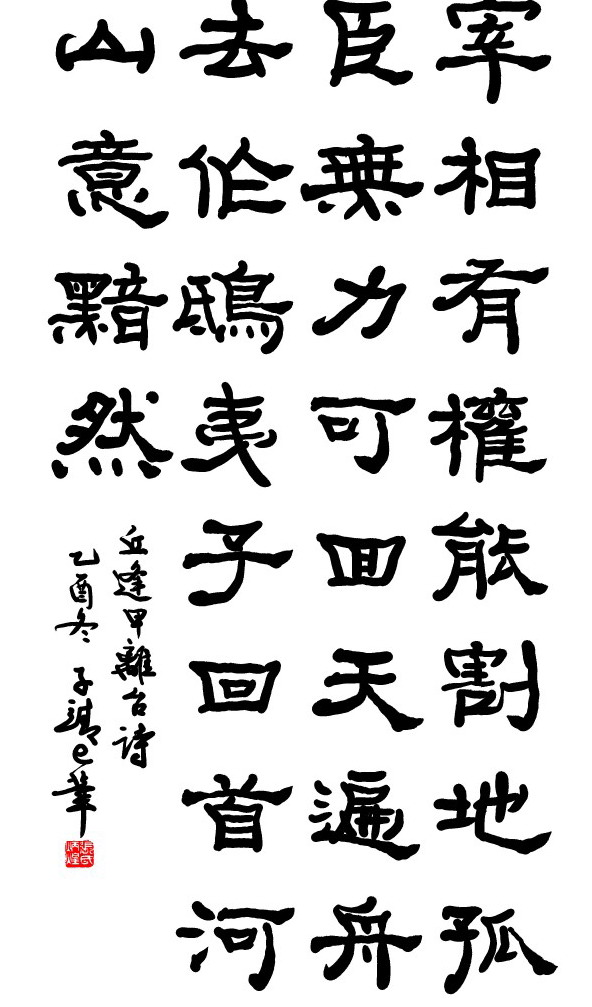 宰相有權能割地孤
臣無力可囬天遍舟
去作鴟夷子回首河
山意黯然
丘逢甲離台詩
乙酉冬
張氏
炳煌